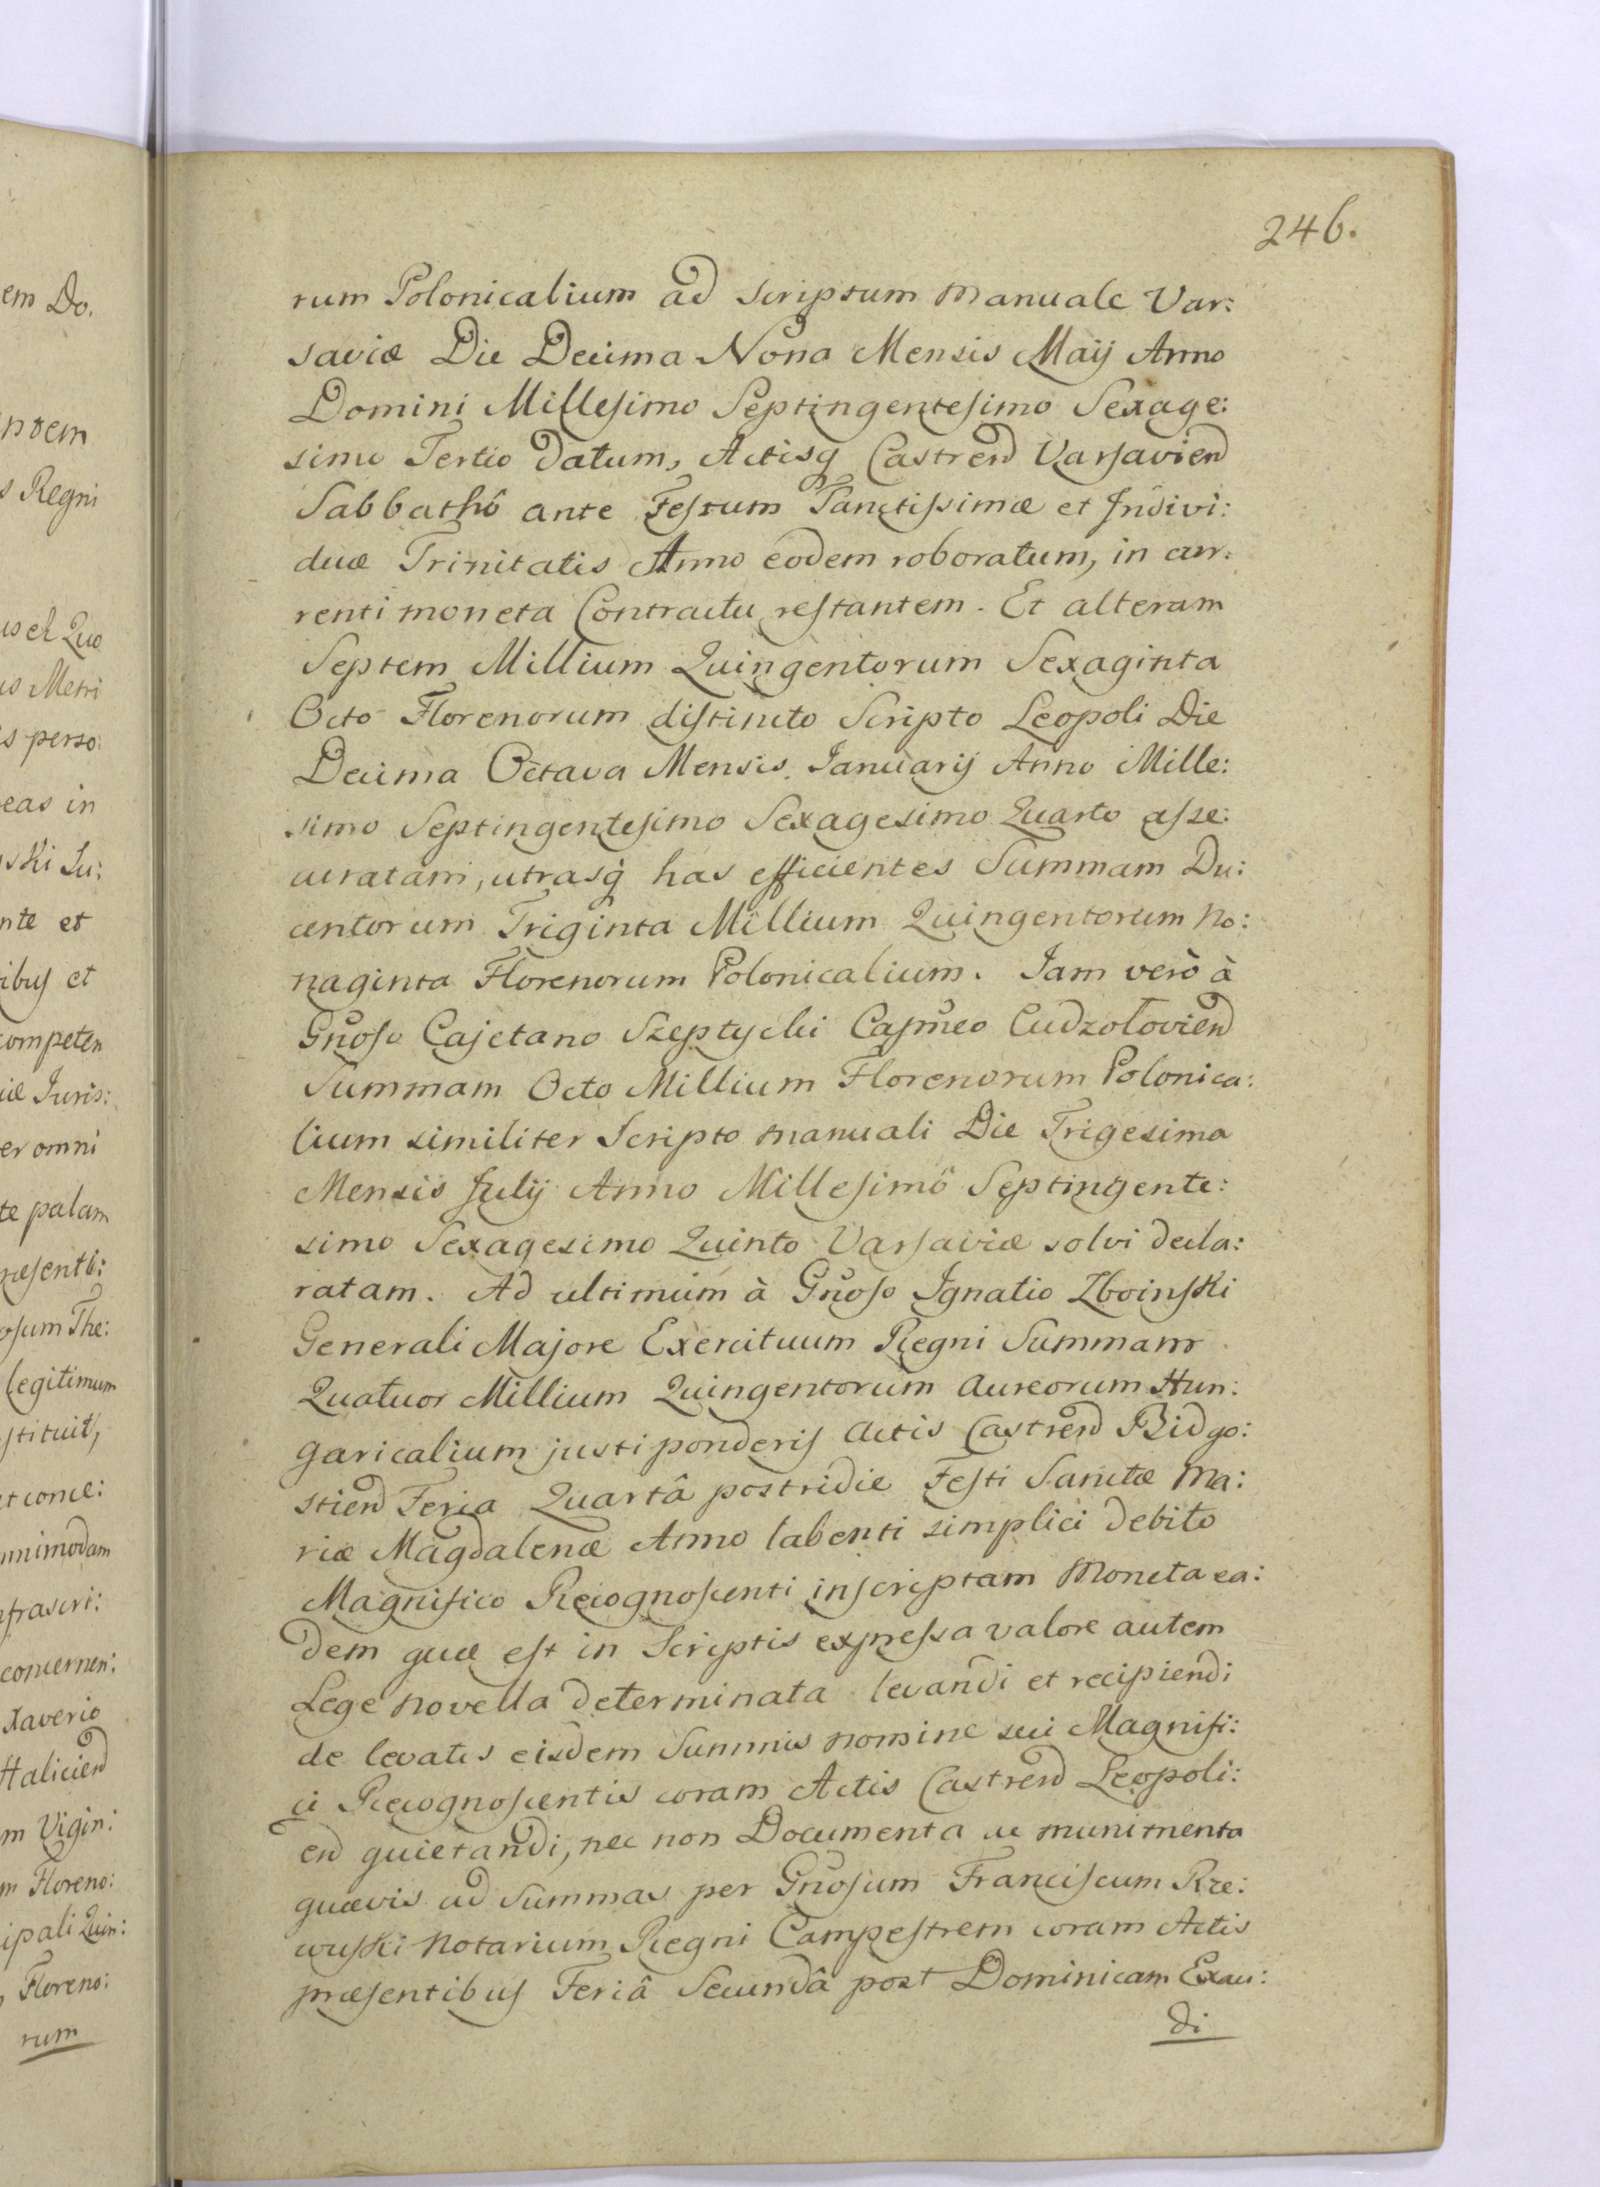 246.
rum Polonicalium ad scriptum manuale Var:
saviæ Die Decima Nona Mensis Maij Anno
Domini Millesimo Septingentesimo Sexage:
simo Tertio datum, Actisq Castrend Varsaviend
Sabbathô ante Festum Sanctissimæ et Indivi:
duæ Trinitatis Anno eodem roboratum, in cur:
renti moneta Contractu restantem. Et alteram
Septem Millium Quingentorum Sexaginta
Octo Florenorum distincto Scripto Leopoli Die
Decima Octava Mensis Januarij Anno Mille:
simo Septingentesimo Sexagesimo Quarto asse:
curatam, utrasq has efficientes Summam Du:
centorum Triginta Millium Quingentorum No:
naginta Florenorum Polonicalium. Jam verò à
Gnoso Cajetano Szeptycki Capneo Cudzołoviend
Summam Octo Millium Florenorum Polonica:
lium similiter Scripto manuali Die Trigesima
Mensis Julij Anno Millesimô Septingente:
simo Sexagesimo Quinto Varsaviæ solvi decla:
ratam. Ad ultimum à Gnoso Ignatio Zboinski
Generali Majore Exercituum Regni Summam
Quatuor Millium Quingentorum Aureorum Hun:
garicalium justi ponderis Actis Castrend Bidgo:
stiend Feria Quartâ postridie Festi Sanctæ Ma:
riæ Magdalenæ Anno labenti simplici debito
Magnifico Recognoscenti inscriptam Moneta ea:
dem quæ est in Scriptis expressa valore autem
Lege novella determinata levandi et recipiendi
de levatis eisdem Summis nomine sui Magnifi:
ci Recognoscentis coram Actis Castrend Leopoli:
end quietandi, nec non Documenta ac munimenta
quævis ad Summas per Gnosum Franciscum Rze:
wuski Notarium Regni Campestrem coram Actis
præsentibus Feriâ Secundâ post Dominicam Exau:
di